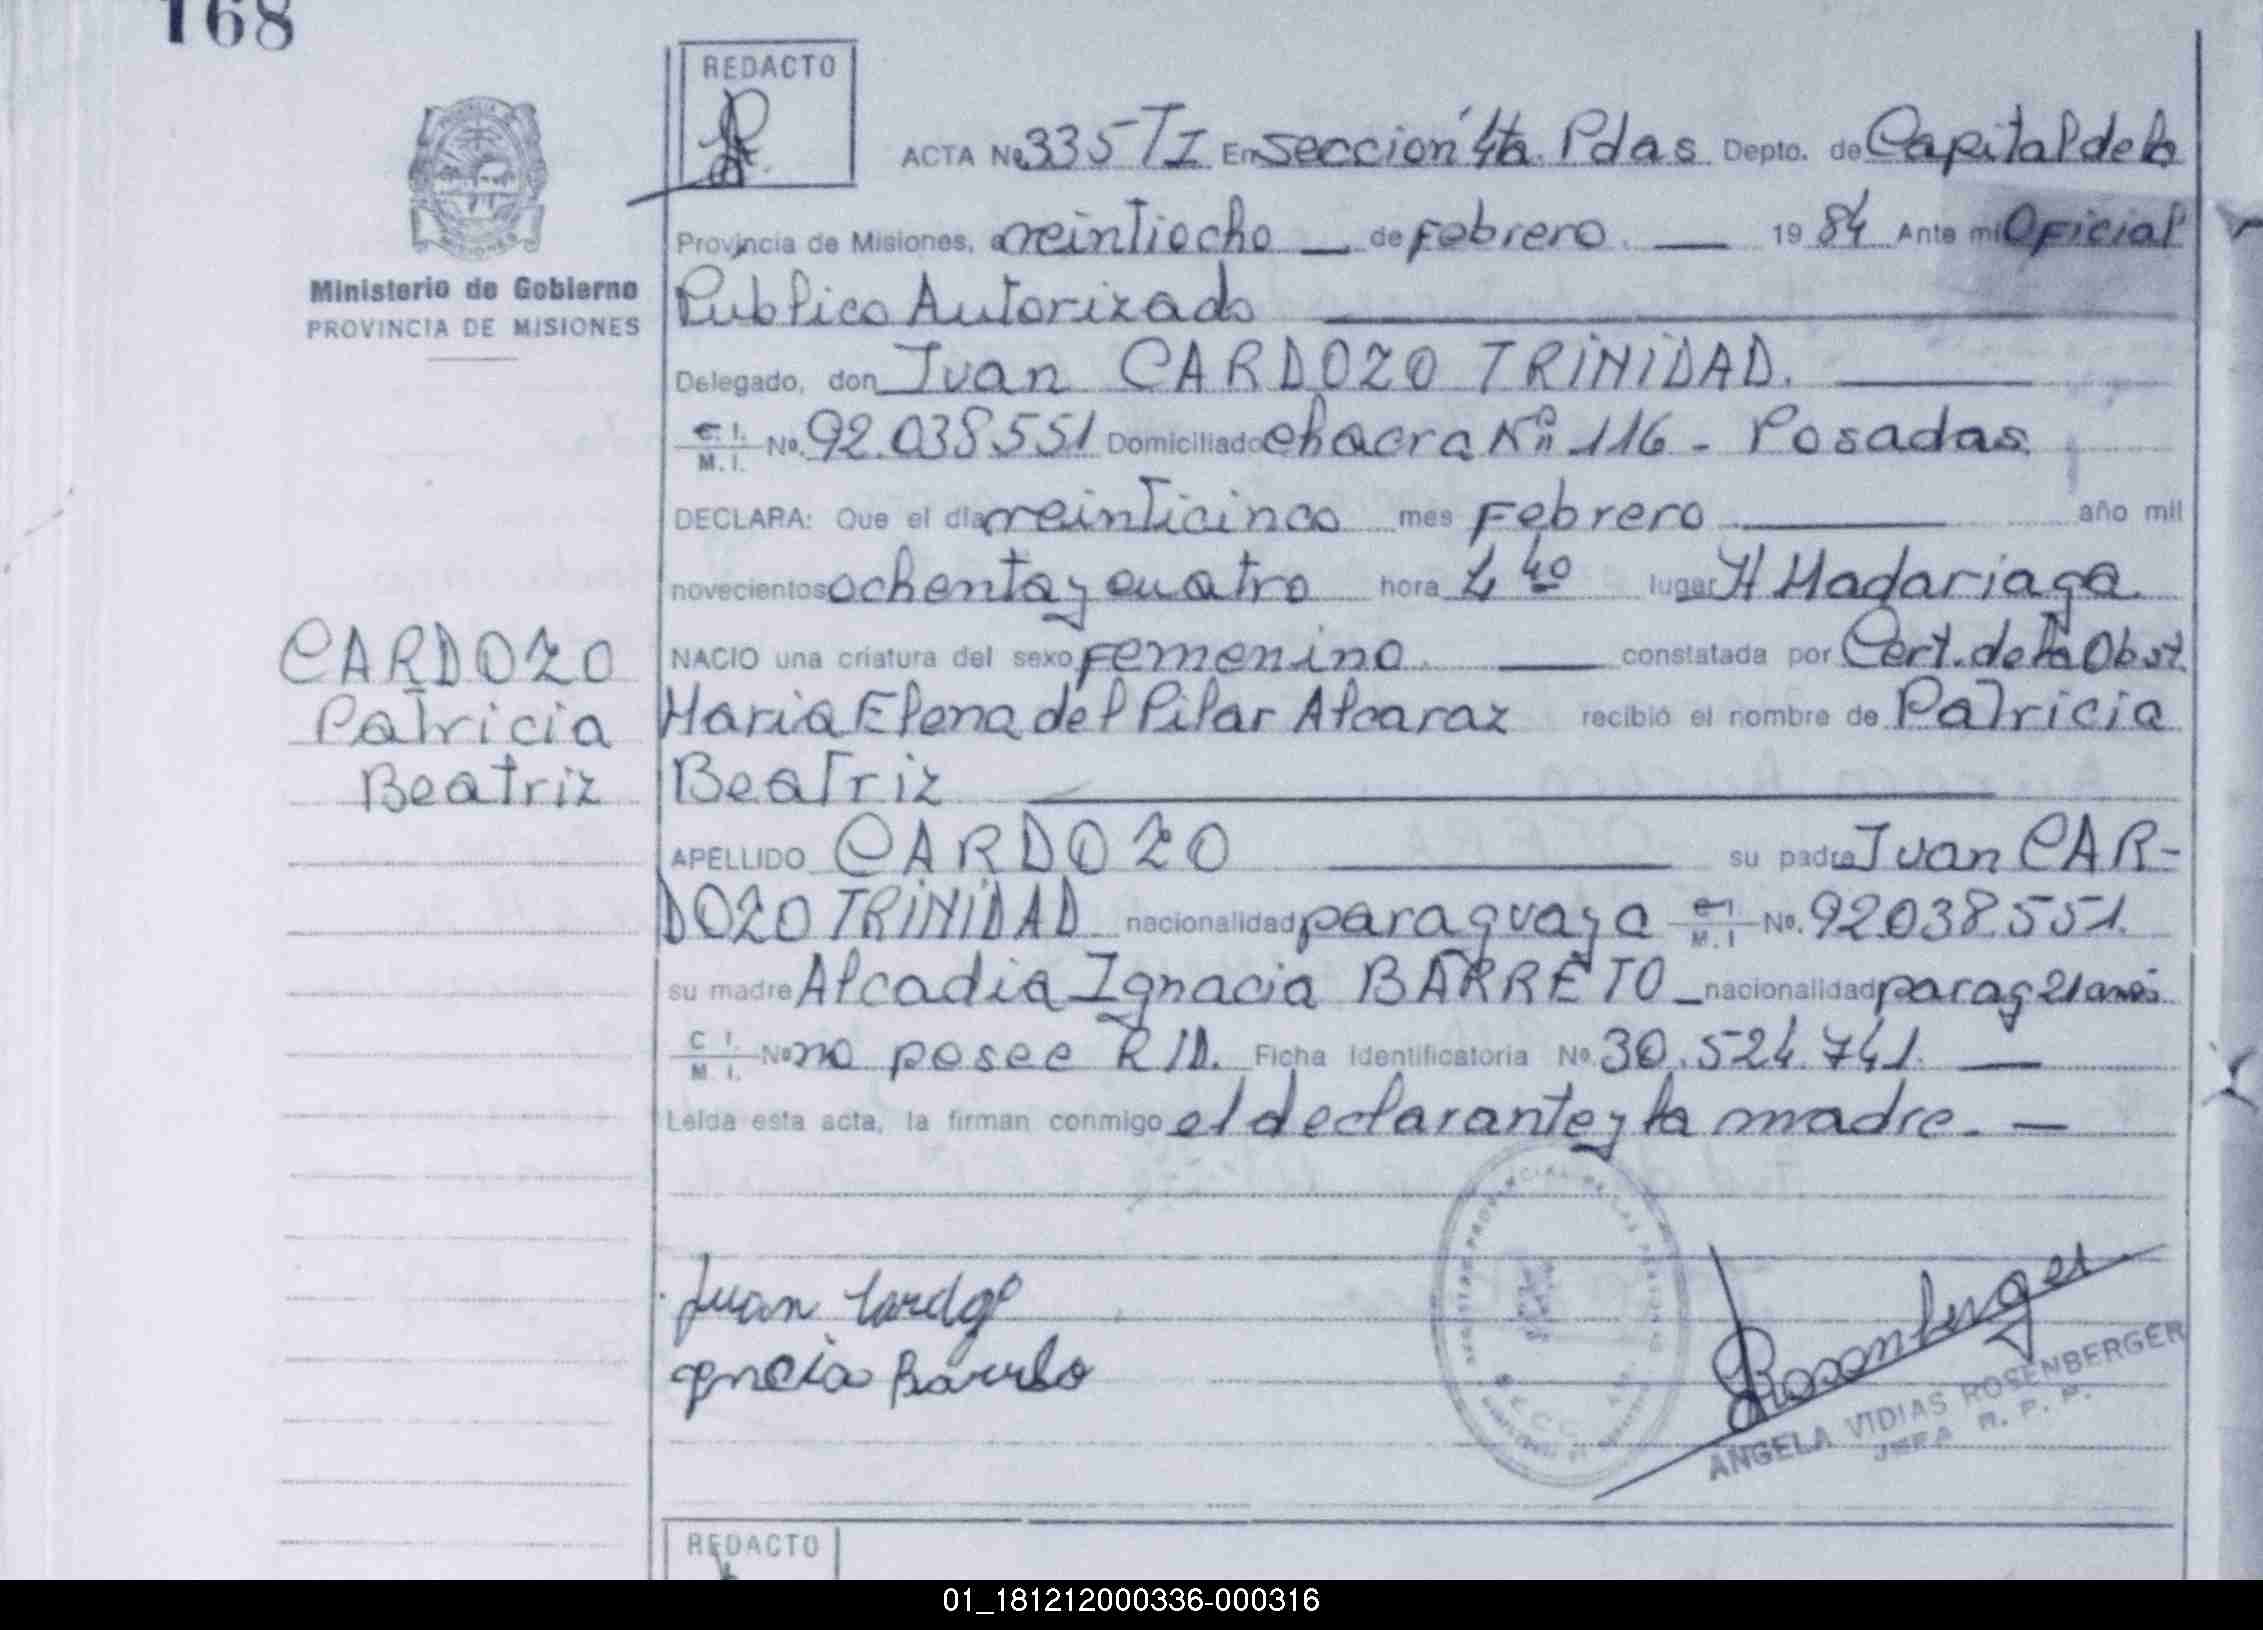 168
REDACTO
ACTA Nº 335 TI En sección 4ta. Pdas Depto. de Capital de la
Provincia de Misiones, a veintiocho — de Febrero. — 19 84 Ante mi Oficial
Público Autorizado
Ministerio de Gobierno
PROVINCIA DE MISIONES
Delegado, don Juan CARDOZO TRINIDAD.
C. I. M. I. Nº. 92.038.551 Domiciliado chacra Nº 116 - Posadas
DECLARA: Que el día veinticinco mes Febrero año mil
novecientos ochenta y cuatro hora 4 40 lugar H Madariaga
NACIO una criatura del sexo Femenino. — constatada por Cert. de la Obst.
Maria Elena del Pilar Alcaraz recibió el nombre de Patricia
Beatriz
CARDOZO
Patricia
Beatriz
APELLIDO CARDOZO su padre Juan CAR-
DOZO TRINIDAD nacionalidad paraguaya C. I. M. I Nº. 92.038.551.
su madre Alcadia Ignacia BARRETO — nacionalidad parag 21 años
C I. M. I. Nº no posee RID. Ficha Identificatoria Nº. 30.524.741. —
Leída esta acta, la firman conmigo el declarante y la madre. —
Juan Cardozo
Barreto
Rosenberger
ANGELA VIDIAS ROSENBERGER
JEFA R. P. P.
REDACTO
01_181212000336-000316